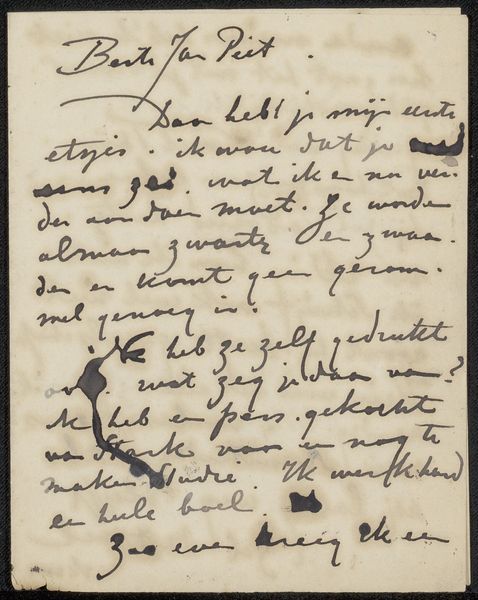 Beste Jan Piet.
Daar hebt je mijn eerste
etsjes. ik wou dat je
eens zei. wat ik er nu ver-
der aan doen moet. Ze worden
almaar zwarter en zwaar-
der er komt geen gerom-
mel genoeg in.
Ik heb ze zelf gedrukt
ook. wat zeg je daar van?
ik heb en pers. gekocht
van Stark voor en nog te
maken Studie. Ik werk hard
en hele boel.
Zoo even kreeg ik een